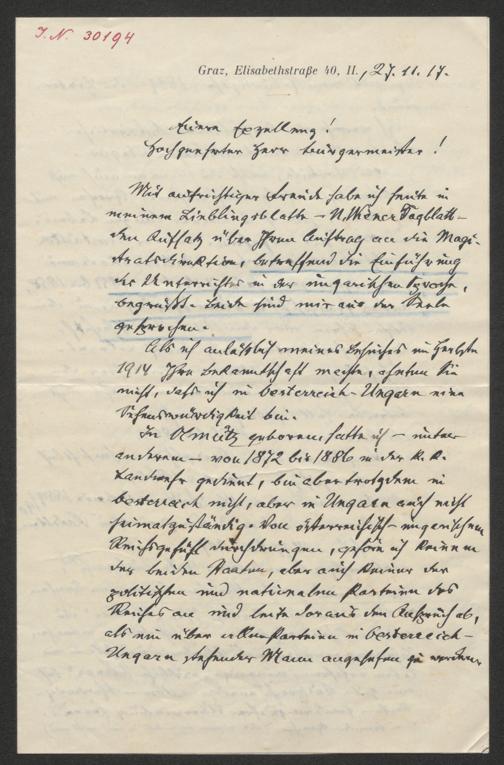 I. N. 30194
Graz, Elisabethstraße 40, II., 27. 11. 17.
Euere Exzellenz!
Hochgeehrter Herr Bürgermeister!
Mit aufrichtiger Freude habe ich heute in
meinem Lieblingsblatte – N. Wiener Tagblatt –
den Aufsatz über Ihren Auftrag an die Magi-
stratsdirektion, betreffend die Einführung
des Unterrichtes in der ungarischen Sprache,
begrüßt. Beide sind mir aus der Seele
gesprochen.
Als ich anläßlich meines Besuches im Herbste
1914 Ihre Bekanntschaft machte, ahnten Sie
nicht, daß ich in Oesterreich-Ungarn eine
Sehenswürdigkeit bin.
In Olmütz geboren, hatte ich – unter
anderem – von 1872 bis 1886 in der k. k.
Landwehr gedient, bin aber trotzdem in
Oesterreich nicht, aber in Ungarn auch nicht
heimatzuständig. Von österreichisch-ungarischem
Reichsgefühl durchdrungen, gehöre ich keinem
der beiden Staaten, aber auch keiner der
politischen und nationalen Parteien des
Reiches an und leite daraus den Anspruch ab,
als ein über allen Parteien in Oesterreich-
Ungarn stehender Mann angesehen zu werden.